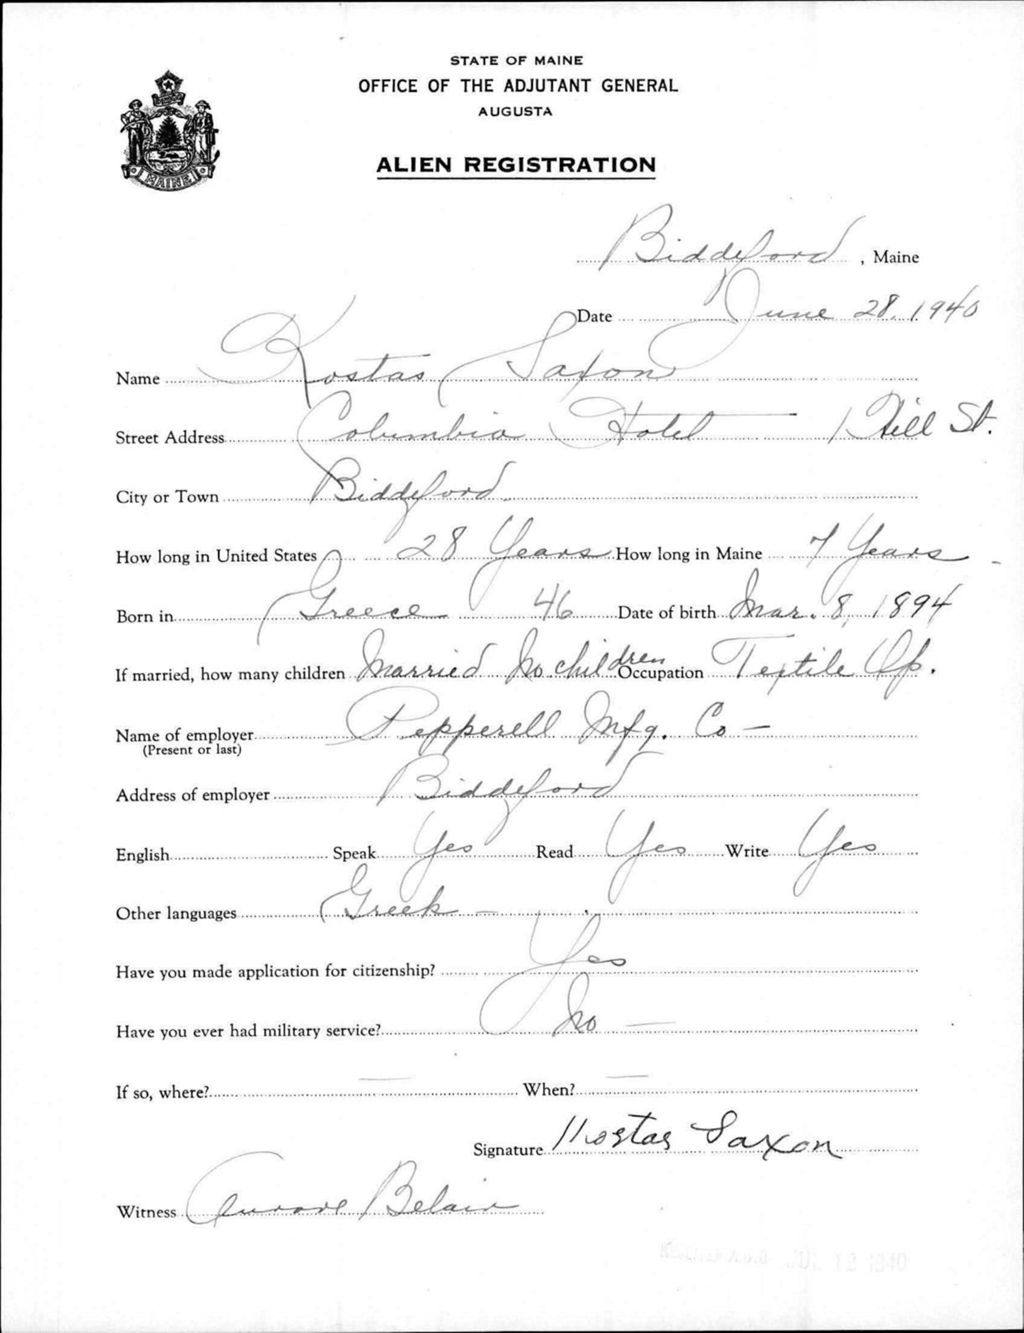 STATE OF MAINE
OFFICE OF THE ADJUTANT GENERAL
AUGUSTA
ALIEN REGISTRATION
MAINE
Biddeford, Maine
Date June 28, 1940
Name Kostas Saxon
Street Address Columbia Hotel — 1 Hill St.
City or Town Biddeford.
How long in United States 28 Years How long in Maine 7 Years
Born in Greece 46 Date of birth Mar. 8, 1894
If married, how many children Married No children Occupation Textile Op.
Name of employer Pepperell Mfg. Co —
(Present or last)
Address of employer Biddeford
English Speak Yes Read Yes Write Yes
Other languages Greek —
Have you made application for citizenship? Yes
Have you ever had military service? No —
If so, where? — When? —
Signature Kostas Saxon
Witness Aurore Belair